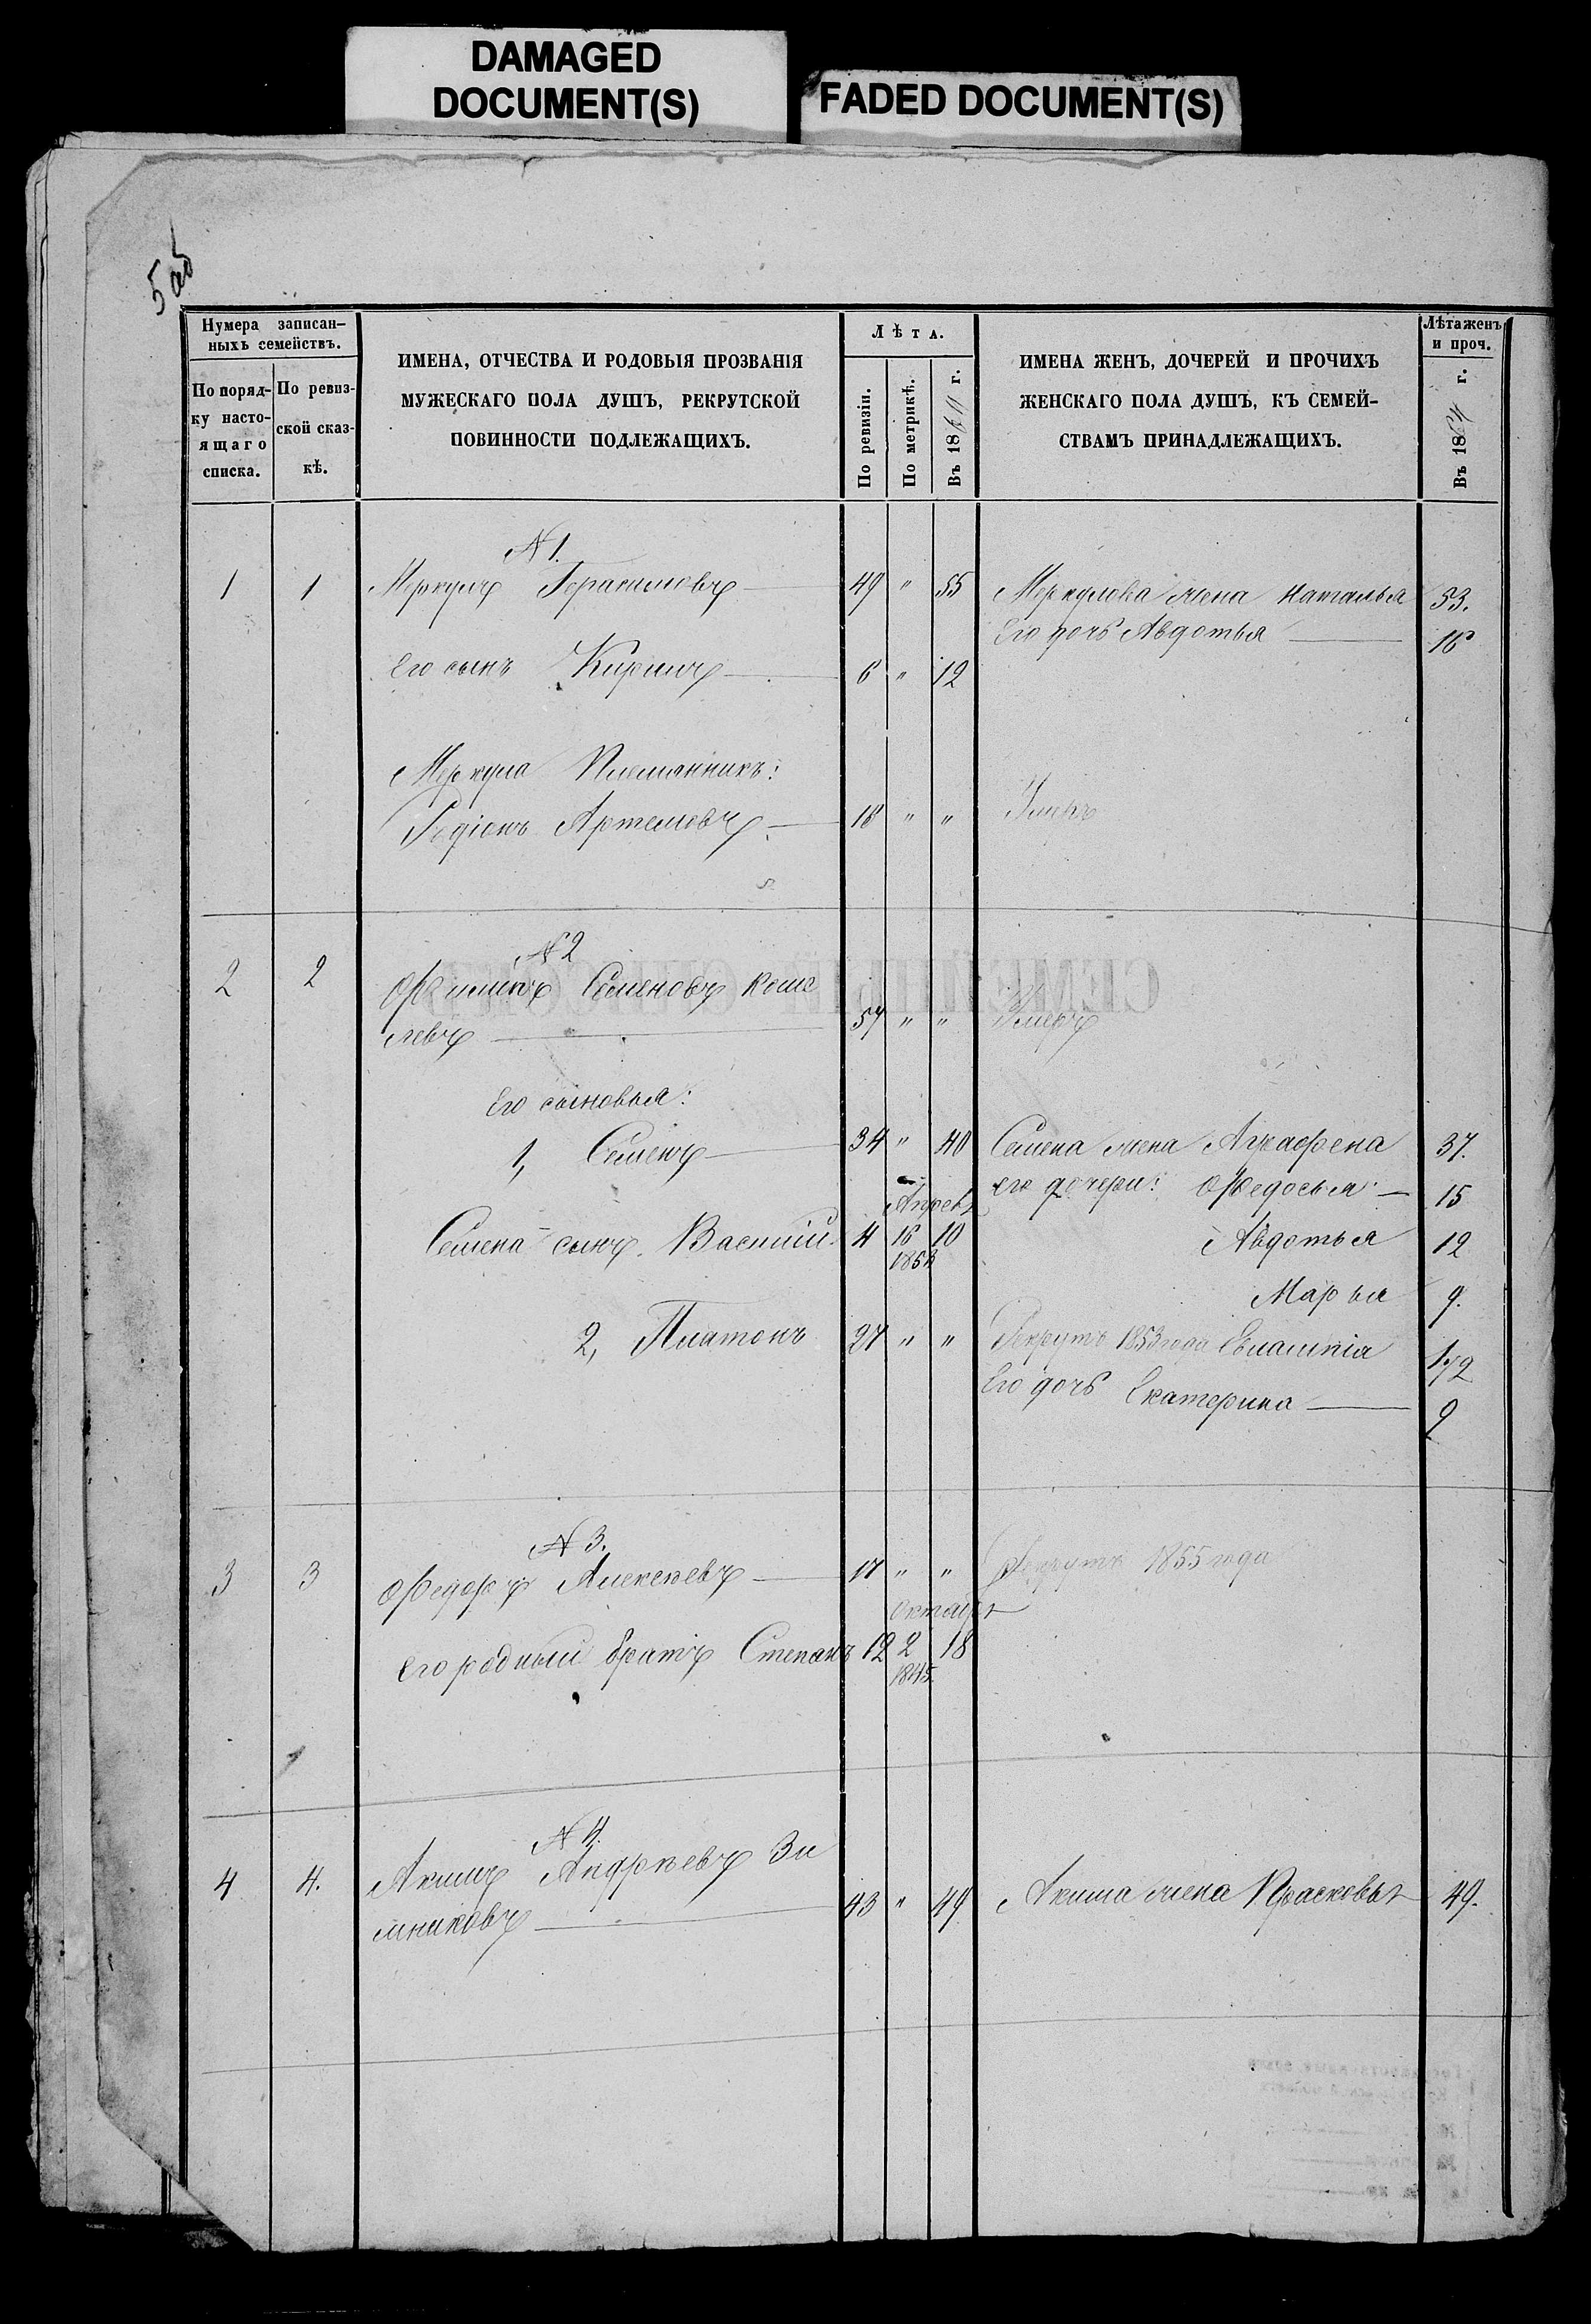 DAMAGED
DOCUMENT(S)
FADED DOCUMENT(S)
5об
Нумера записан-
ныхъ семействъ.
По поряд-
ку насто-
ящаго
списка.
По ревиз-
ской сказ-
кѣ.
ИМЕНА, ОТЧЕСТВА И РОДОВЫЯ ПРОЗВАНІЯ
МУЖЕСКАГО ПОЛА ДУШЪ, РЕКРУТСКОЙ
ПОВИННОСТИ ПОДЛЕЖАЩИХЪ.
Лѣта.
По ревизіи.
По метрикѣ.
Въ 1864 г.
ИМЕНА ЖЕНЪ, ДОЧЕРЕЙ И ПРОЧИХЪ
ЖЕНСКАГО ПОЛА ДУШЪ, КЪ СЕМЕЙ-
СТВАМЪ ПРИНАДЛЕЖАЩИХЪ.
Лѣта женъ
и проч.
Въ 1864 г.
N 1.
1 1 Меркулъ Герасимовъ — 49 " 55 Меркулова жена Наталья 53.
Его дочь Авдотья — 16
Его сынъ Кирилъ — 6 " 12
Меркула Племянникъ:
Родіонъ Артемовъ — 18 " " Умеръ
N 2
2 2 Филипъ Семеновъ Коше
левъ — 57 " " Умеръ
Его сыновья:
1, Семенъ — 34 " 40 Семена жена Аграфена 37.
его дочери: Федосья — 15
Апрель
Семена сынъ Василій 4 16 10 Авдотья 12
1854
Марья 9.
2, Платонъ 27 " " Рекрутъ 1853 года Евлампія 32
Его дочь Екатерина — 9
N 3.
3 3 Федоръ Алексѣевъ — 17 " " Рекрутъ 1855 года
Октября
его родный братъ Степанъ 12 2 18
1845.
N 4.
4 4. Акимъ Андрѣевъ Зи
мниковъ — 43 " 49 Акима жена Прасковья 49.